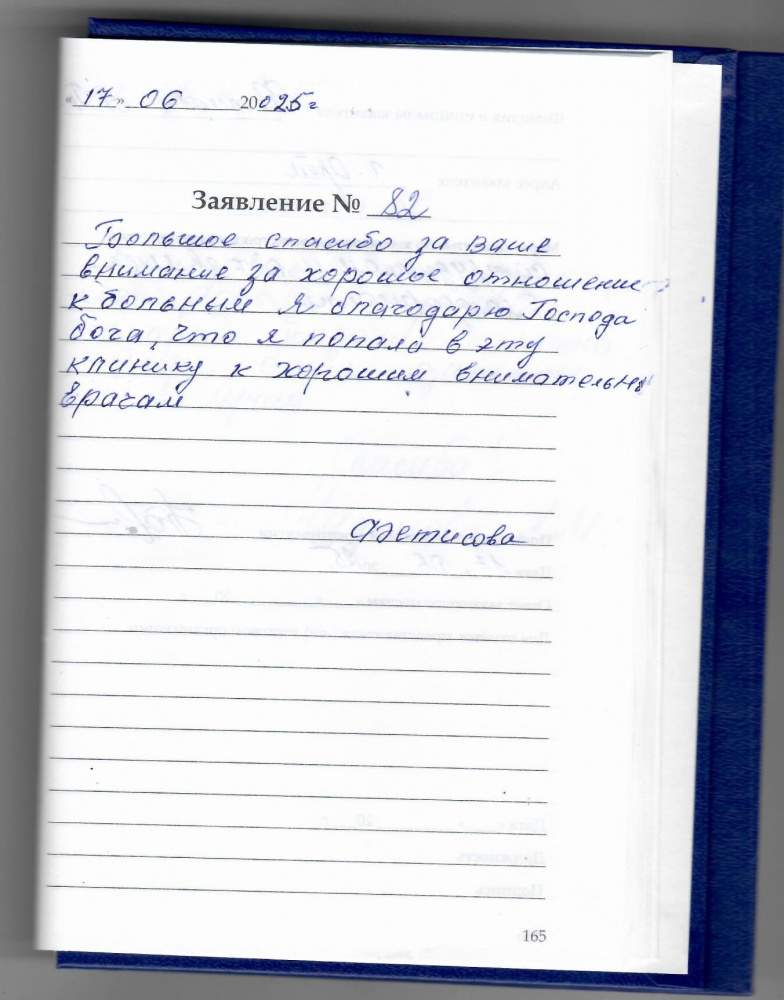 «17» 06 20025 г
Заявление № 82
Большое спасибо за ваше
внимание за хорошое отношение
к больным Я благодарю Господа
бога, что я попала в эту
клинику к хорошим внимательны
врачам
Фетисова
165